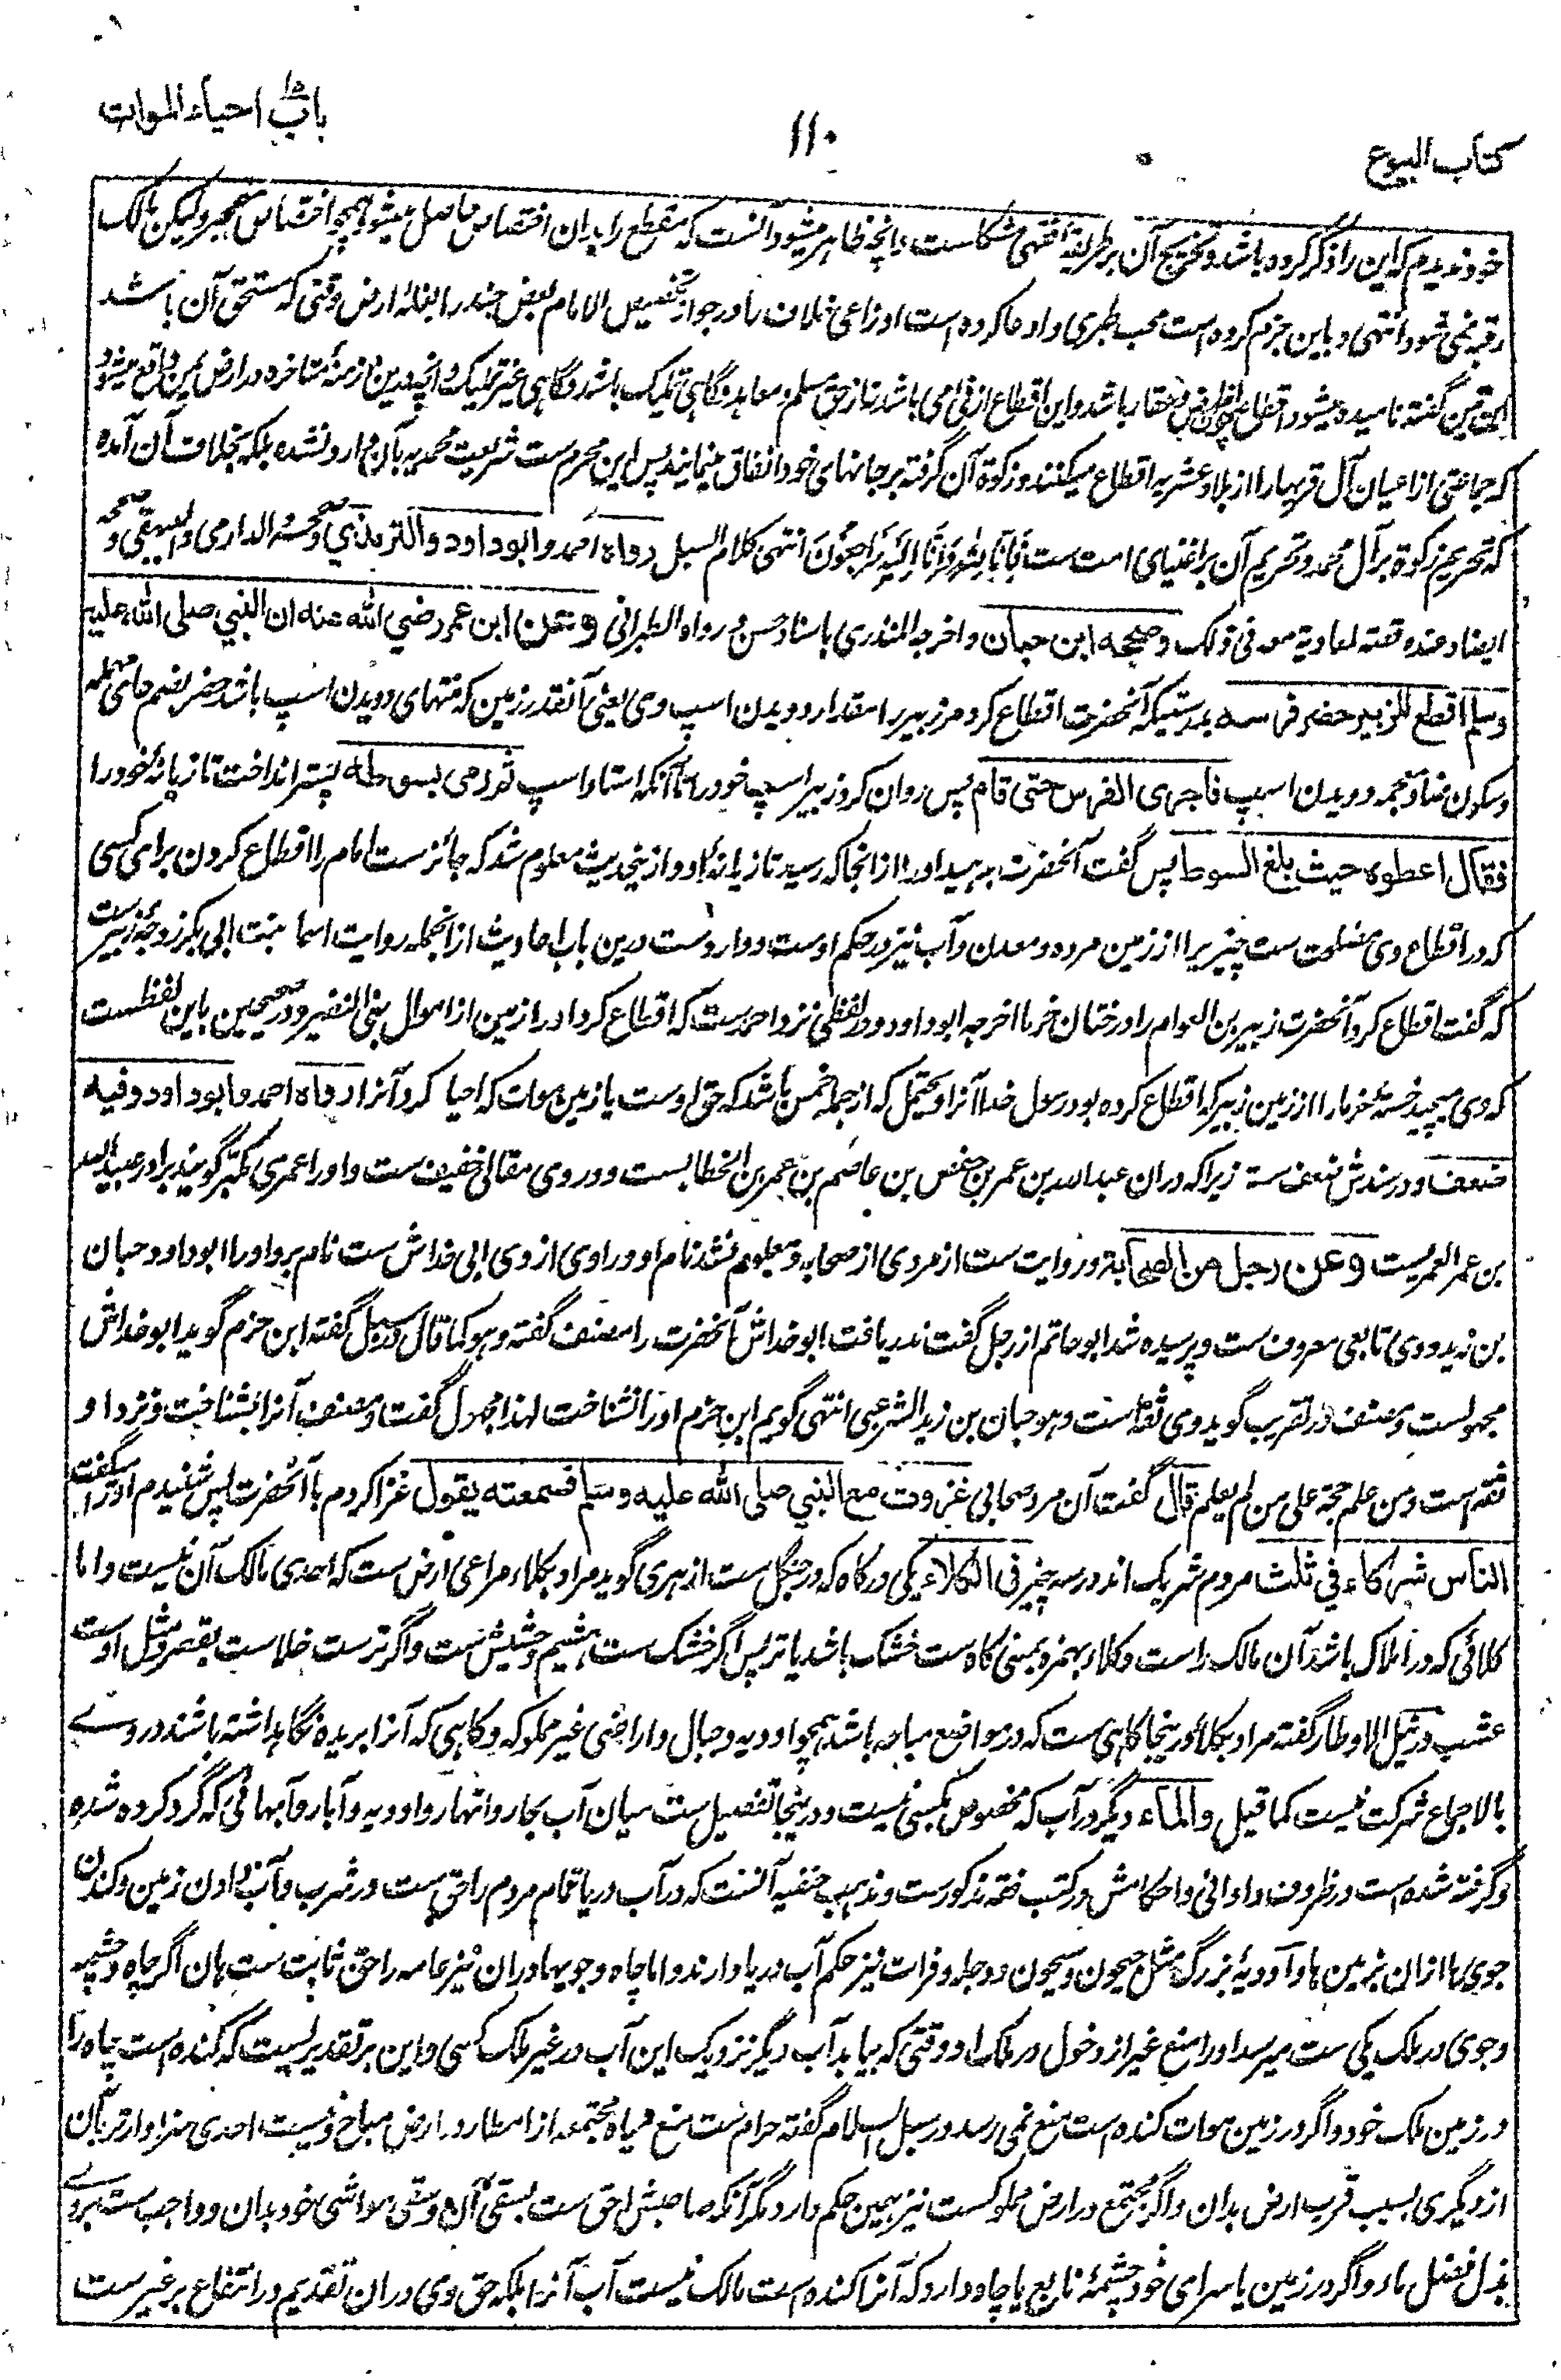 باب احیاء الموات
۱۱۰
کتاب البیوع
خود ندیدم که این را ذکر کرده باشد و تخریج آن بر طریقه فقهی مشکل است و آنچه ظاهر میشود آنست که مقطع را بدان اختصاص حاصل میشود همچو اختصاص متحجر ولیکن مالک
رقبه نمی شود انتهی و باین جزم کرده است محب طبری و ادعا کرده است اوزاعی خلاف را در جواز تخصیص الامام بعض جند را بغلۀ ارض وقتی که مستحق آن باشد
ابن تین گفته نامیده میشود اقطاع چون ارض و عقار باشد و این اقطاع از فی می باشد نه از حق مسلم و معاهد و گاهی تملیک باشد و گاهی غیر تملیک و آنچه درین ازمنۀ متاخره در ارض یمن واقع میشود
که جماعتی از اعیان آل قریها را از بلاد عشریه اقطاع میکنند و زکوة آن گرفته بر جانهای خود انفاق مینمایند پس این محرم ست شریعت محمدیه بآن وارد نشده بلکه بخلاف آن آمده
که تحریم زکوة بر آل محمد و تحریم آن بر اغنیای امت ست فَاِنَّا لِلّٰهِ وَاِنَّا اِلَیْهِ رَاجِعُوْنَ انتهی کلام السبل رواه احمد و ابو داود و الترمذي وحسنه الدارمی و البیهقی و صححه
ایضا و عنده قصته لمعاویة معه فی ذلک وصححه ابن حبان و اخرجه المنذری باسناد حسن و رواه الطبرانی وعن ابن عمر رضي الله عنه ان النبي صلی الله علیه
وسلم اقطع للزبیر حضر فرسه بدرستیکه آنحضرت اقطاع کرد مر زبیر را مقدار دویدن اسپ وی یعنی آنقدر زمین که منتهای دویدن اسپ باشد حضر بضم حای مهمله
و سکون ضاد معجمه دویدن اسپ فاجری الفرس حتی قام پس روان کرد زبیر اسپ خود را تا آنکه استاد اسپ ثم رمی بسوطه پستر انداخت تازیانۀ خود را
فقال اعطوه حیث بلغ السوط پس گفت آنحضرت بدهید او را از انجا که رسید تازیانۀ او و ازینحدیث معلوم شد که جائزست امام را اقطاع کردن برای کسی
که در اقطاع وی مصلحت ست چیزیرا از زمین مرده و معدن و آب نیز در حکم اوست و واردست درین باب احادیث از انجمله روایت اسما بنت ابی بکر زوجۀ زبیرست
که گفت اقطاع کرد آنحضرت زبیر بن العوام را درختان خرما اخرجه ابو داود و در لفظی نزد احمدست که اقطاع کرد او را زمین از اموال بنی النضیر و در صحیحین باین لفظست
که وی میچید خستۀ خرما را از زمین زبیر که اقطاع کرده بود رسول خدا آنرا و یحتمل که از جملۀ خمس باشد که حق اوست یا زمین موات که احیا کرد آنرا رواه احمد و ابو داود و فیه
ضعف و در سندش ضعف ست زیرا که دران عبدالله بن عمر بن حفص بن عاصم بن عمر بن الخطابست و در وی مقالی خفیف ست و او را عمری مکبّر گویند برادر عبیدالله
بن عمر العمریست وعن رجل من الصحابة و روایت ست از مردی از صحابه و معلوم نشد نام او و راوی از وی ابی خداش ست نام برد او را ابو داود حبان
بن زید و وی تابعی معروف ست و پرسیده شد ابو حاتم از رجل گفت ندریافت ابو خداش آنحضرت را مصنف گفته و هو کما قال در سبل گفته ابن حزم گوید ابو خداش
مجهولست و مصنف در تقریب گوید وی ثقه است و هو حبان بن زید الشرعبی انتهی گویم ابن حزم او را نشناخت لهذا مجهول گفت و مصنف آنرا بشناخت و نزد او
ثقه است و من علم حجة علی من لم یعلم قال گفت آن مرد صحابی غزوت مع النبي صلی الله علیه وسلم فسمعته یقول غزا کردم با آنحضرت پس شنیدم او را میگفت
الناس شرکاء في ثلث مردم شریک اند در سه چیز فی الکلاء یکی در کاه که در جنگل ست ازهری گوید مراد بکلاء مراعی ارض ست که احدی مالک آن نیست و اما
کلائی که در املاک باشد آن مالک راست و کلاء بهمزه بمعنی کاه ست خشک باشد یا تر پس اگر خشک ست هشیم و حشیش ست و اگر ترست خلاست بقصر و مثل اوست
عشب در نیل الاوطار گفته مراد بکلاء درینجا کاهی ست که در مواضع مباحه باشد همچو اودیه و جبال و اراضی غیر مملوکه و کاهی که آنرا بریده نگاهداشته باشند در وے
بالاجماع شرکت نیست کما قیل والماء دیگر در آب که مخصوص بکسی نیست و درینجا تفصیل ست میان آب بحار و انهار و اودیه و آبار و آبهائی که گرد کرده شده
و گرفته شده است در ظروف و اوانی و احکامش در کتب فقه مذکورست و مذهب حنفیه آنست که در آب دریا تمام مردم را حق ست در شرب و آب دادن زمین و کندن
جوی ها ازان بزمین ها و آودیۀ بزرگ مثل جیحون و سیحون و دجله و فرات نیز حکم آب دریا دارند و اما چاه و جویها دران نیز عامه را حق ثابت ست هان اگر چاه و چشمه
و جوی در ملک یکی ست میرسد او را منع غیر از دخول در ملک او وقتی که بیابد آب دیگر نزدیک این آب در غیر ملک کسی و این بر تقدیریست که کنده است چاه را
در زمین ملک خود و اگر در زمین موات کنده است منع نمی رسد در سبل السلام گفته حرام ست منع میاه مجتمعه از امطار در ارض مباح و نیست احدی سزاوارتر بآن
از دیگری بسبب قرب ارض بدان و اگر مجتمع در ارض مملوکست نیز همین حکم دارد مگر آنکه صاحبش احق ست بسقی آن و سقی مواشی خود بدان و واجب ست بر وے
بذل فضل ماء و اگر در زمین یا سرای خود چشمۀ نابع یا چاه دارد که آنرا کنده است مالک نیست آب آنرا بلکه حق وی دران تقدیم در انتفاع بر غیرست